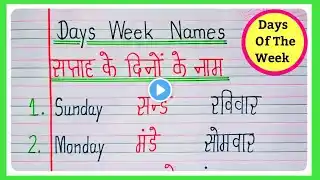 Days Week Names
सप्ताह के दिनों के नाम
Days
Of The
Week
1. Sunday सन्डे रविवार
2. Monday मंडे सोमवार